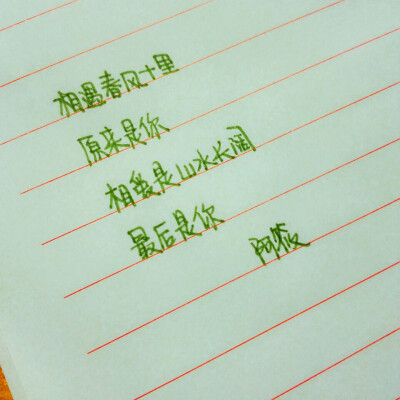 相遇春风十里
原来是你
相爱是山水长阔
最后是你
阿筱